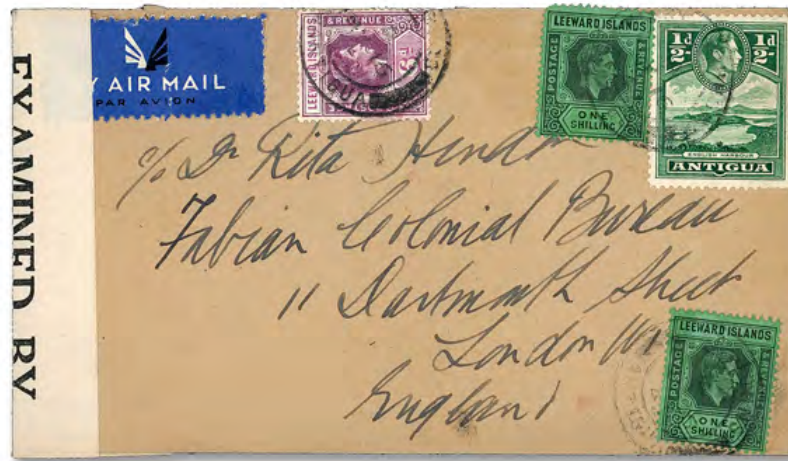 EXAMINED BY
BY AIR MAIL
PAR AVION
LEEWARD ISLANDS
& REVENUE
6d
LEEWARD ISLANDS
POSTAGE
& REVENUE
ONE
SHILLING
½d ½d
ENGLISH HARBOUR
ANTIGUA
c/o Dr Rita
Fabian Colonial Bureau
11 Dartmouth Street
London
England
LEEWARD ISLANDS
POSTAGE
& REVENUE
ONE
SHILLING